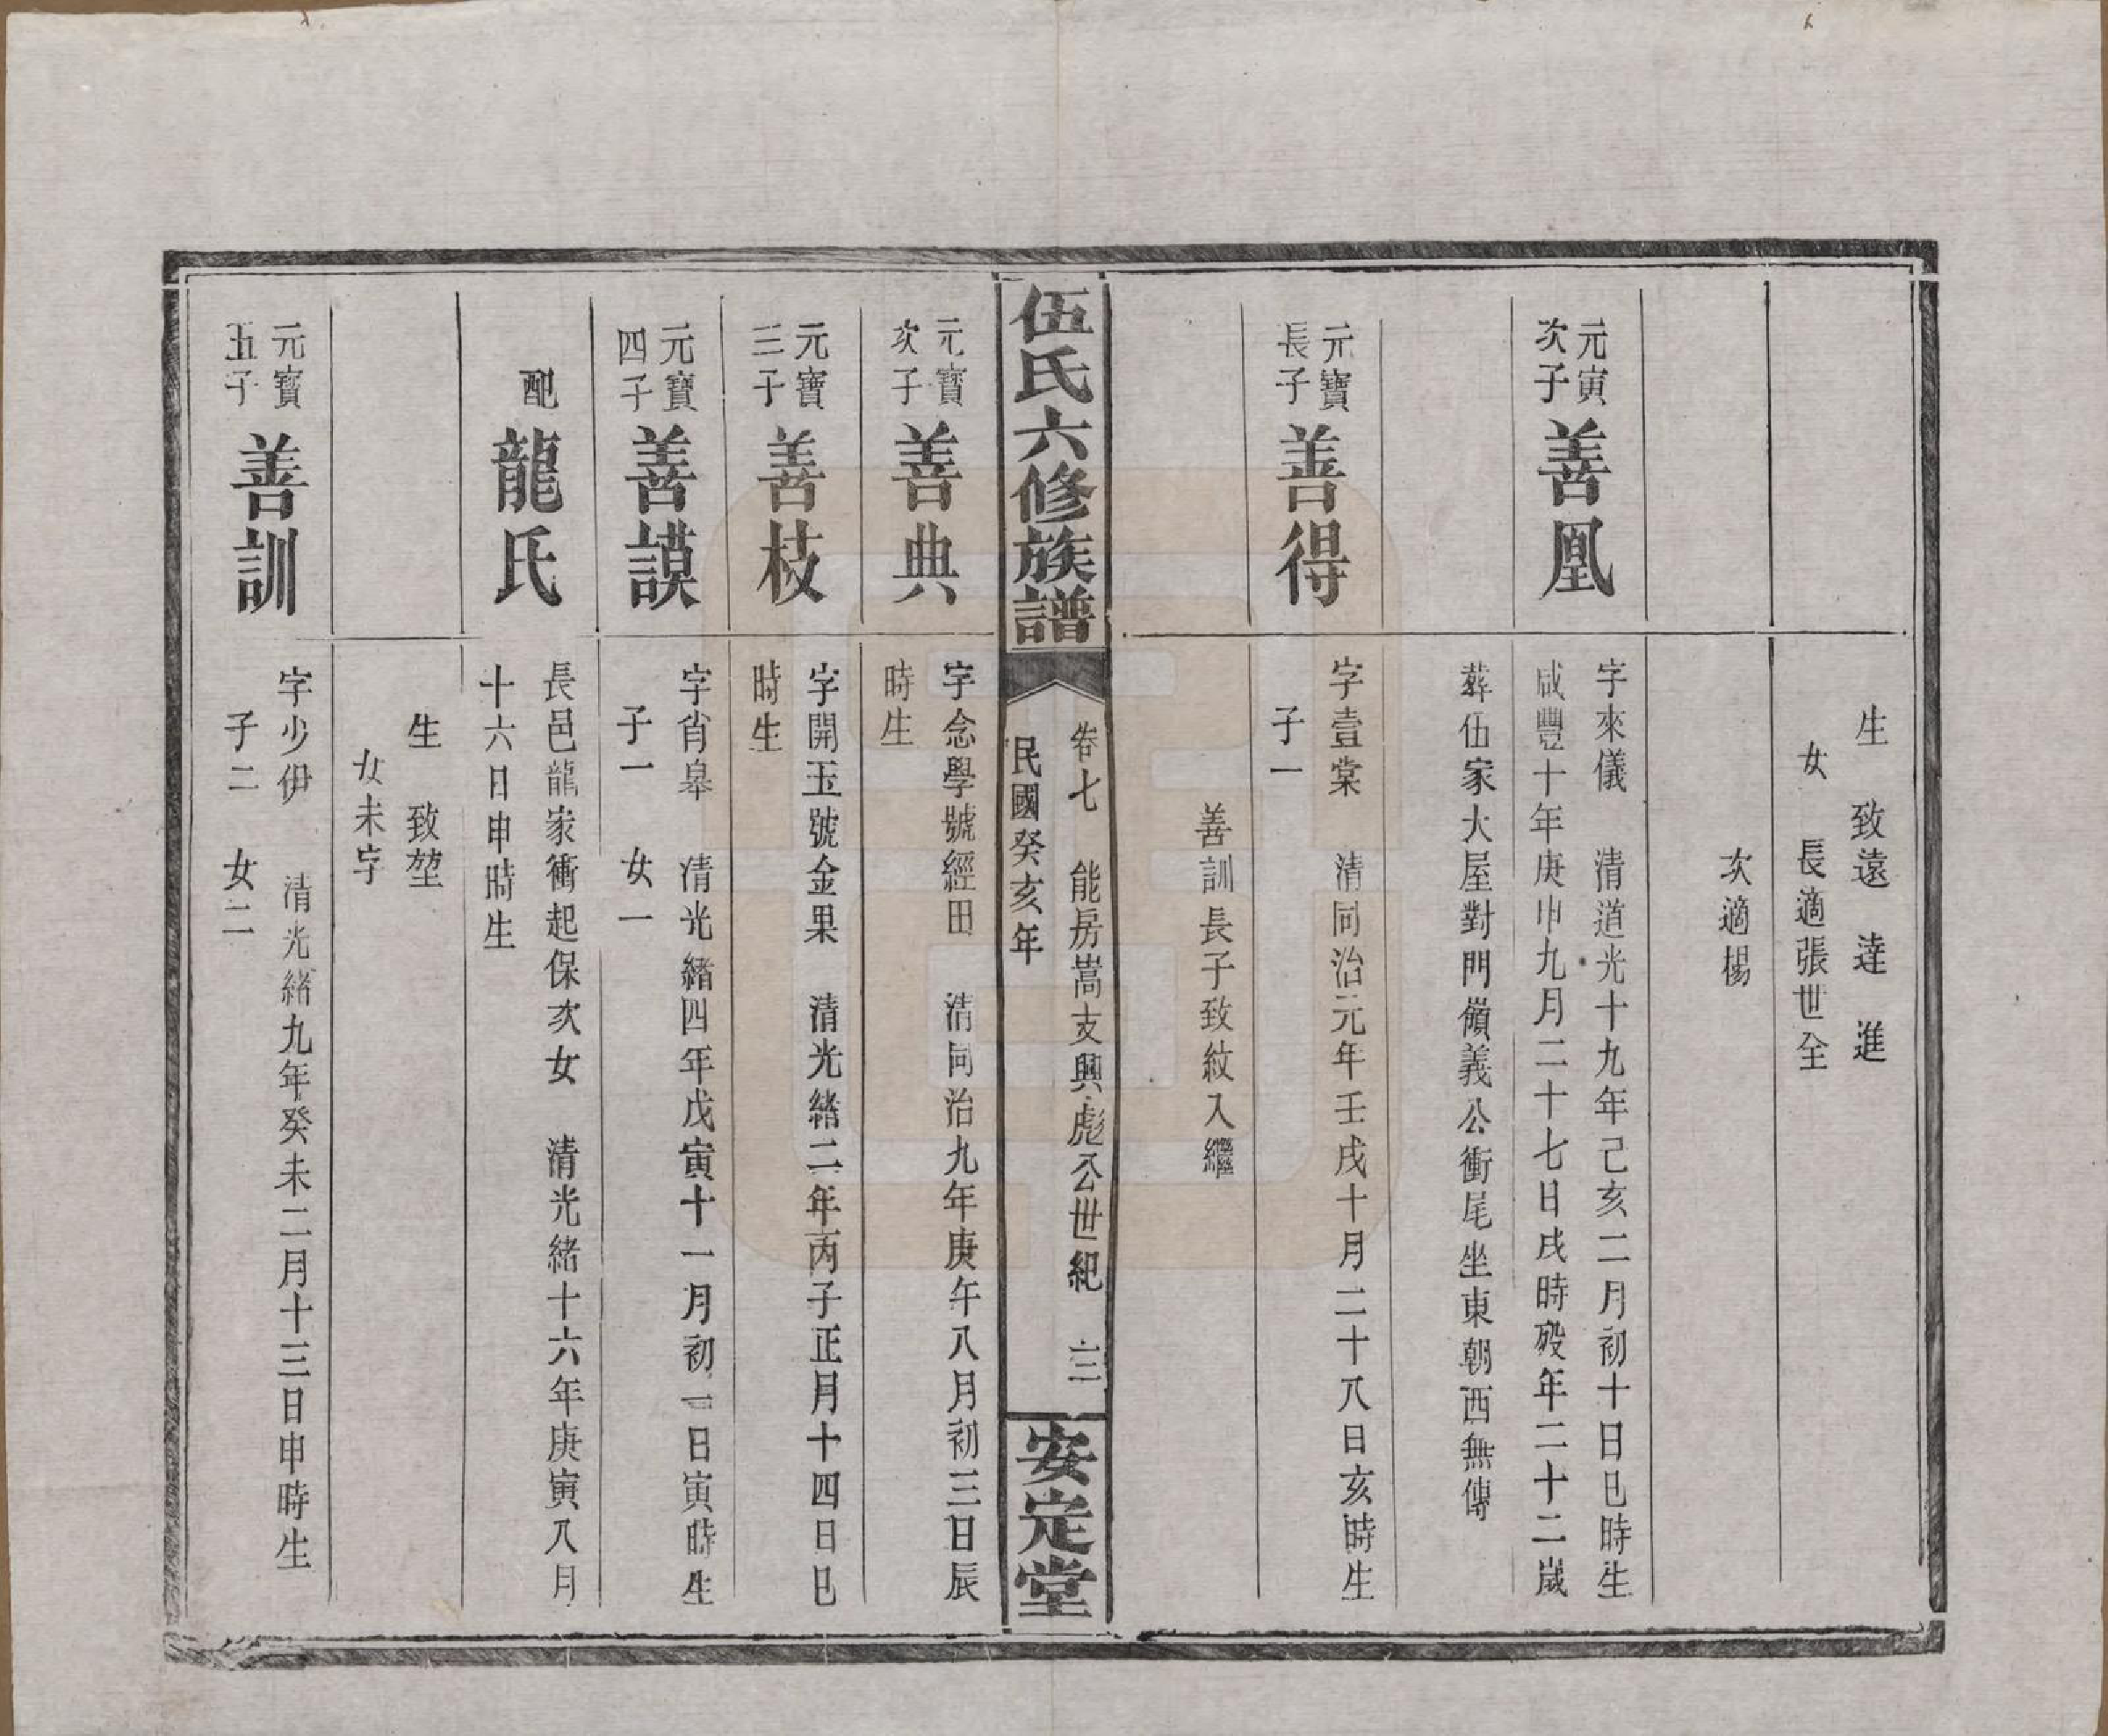 生　致遠　達　進
女　長適張世全
次適楊
元寅
次子
善凰
字來儀　清道光十九年己亥二月初十日巳時生
咸豐十年庚申九月二十七日戌時歿年二十二歲
葬伍家大屋對門嶺義公衝尾坐東朝西無傳
元寶
長子
善得
字壹棠　清同治元年壬戌十月二十八日亥時生
子一
善訓長子致紋入繼
伍氏六修族譜
卷七　能房嵩支興彪公世紀　六二
民國癸亥年
安定堂
元寶
次子
善典
字念學號經田　清同治九年庚午八月初三日辰
時生
元寶
三子
善枝
字開玉號金果　清光緒二年丙子正月十四日巳
時生
元寶
四子
善謨
字肖皋　清光緒四年戊寅十一月初一日寅時生
子一　女一
配
龍氏
長邑龍家衝起保次女　清光緒十六年庚寅八月
十六日申時生
生　致堃
女未字
元寶
五子
善訓
字少伊　清光緒九年癸未二月十三日申時生
子二　女二